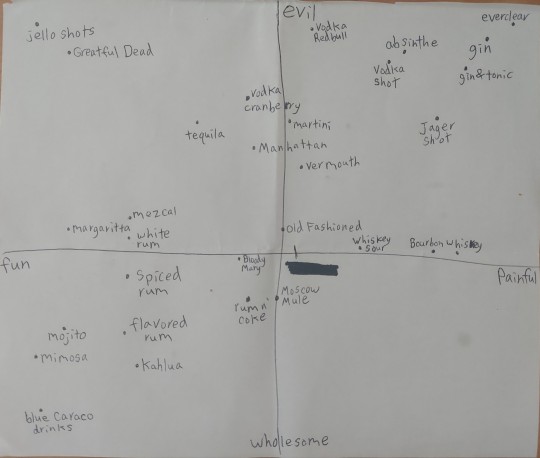 evil
everclear
jello shots
Greatful Dead
vodka
Redbull
absinthe
gin
vodka
shot
gin & tonic
vodka
cranberry
tequila
martini
Jager
shot
Manhattan
vermouth
mezcal
margaritta
white
rum
old Fashioned
whiskey
sour
Bourbon whiskey
fun
Bloody
Mary
Painful
Spiced
rum
rum n'
coke
Moscow
Mule
mojito
flavored
rum
mimosa
Kahlua
blue Caraco
drinks
wholesome